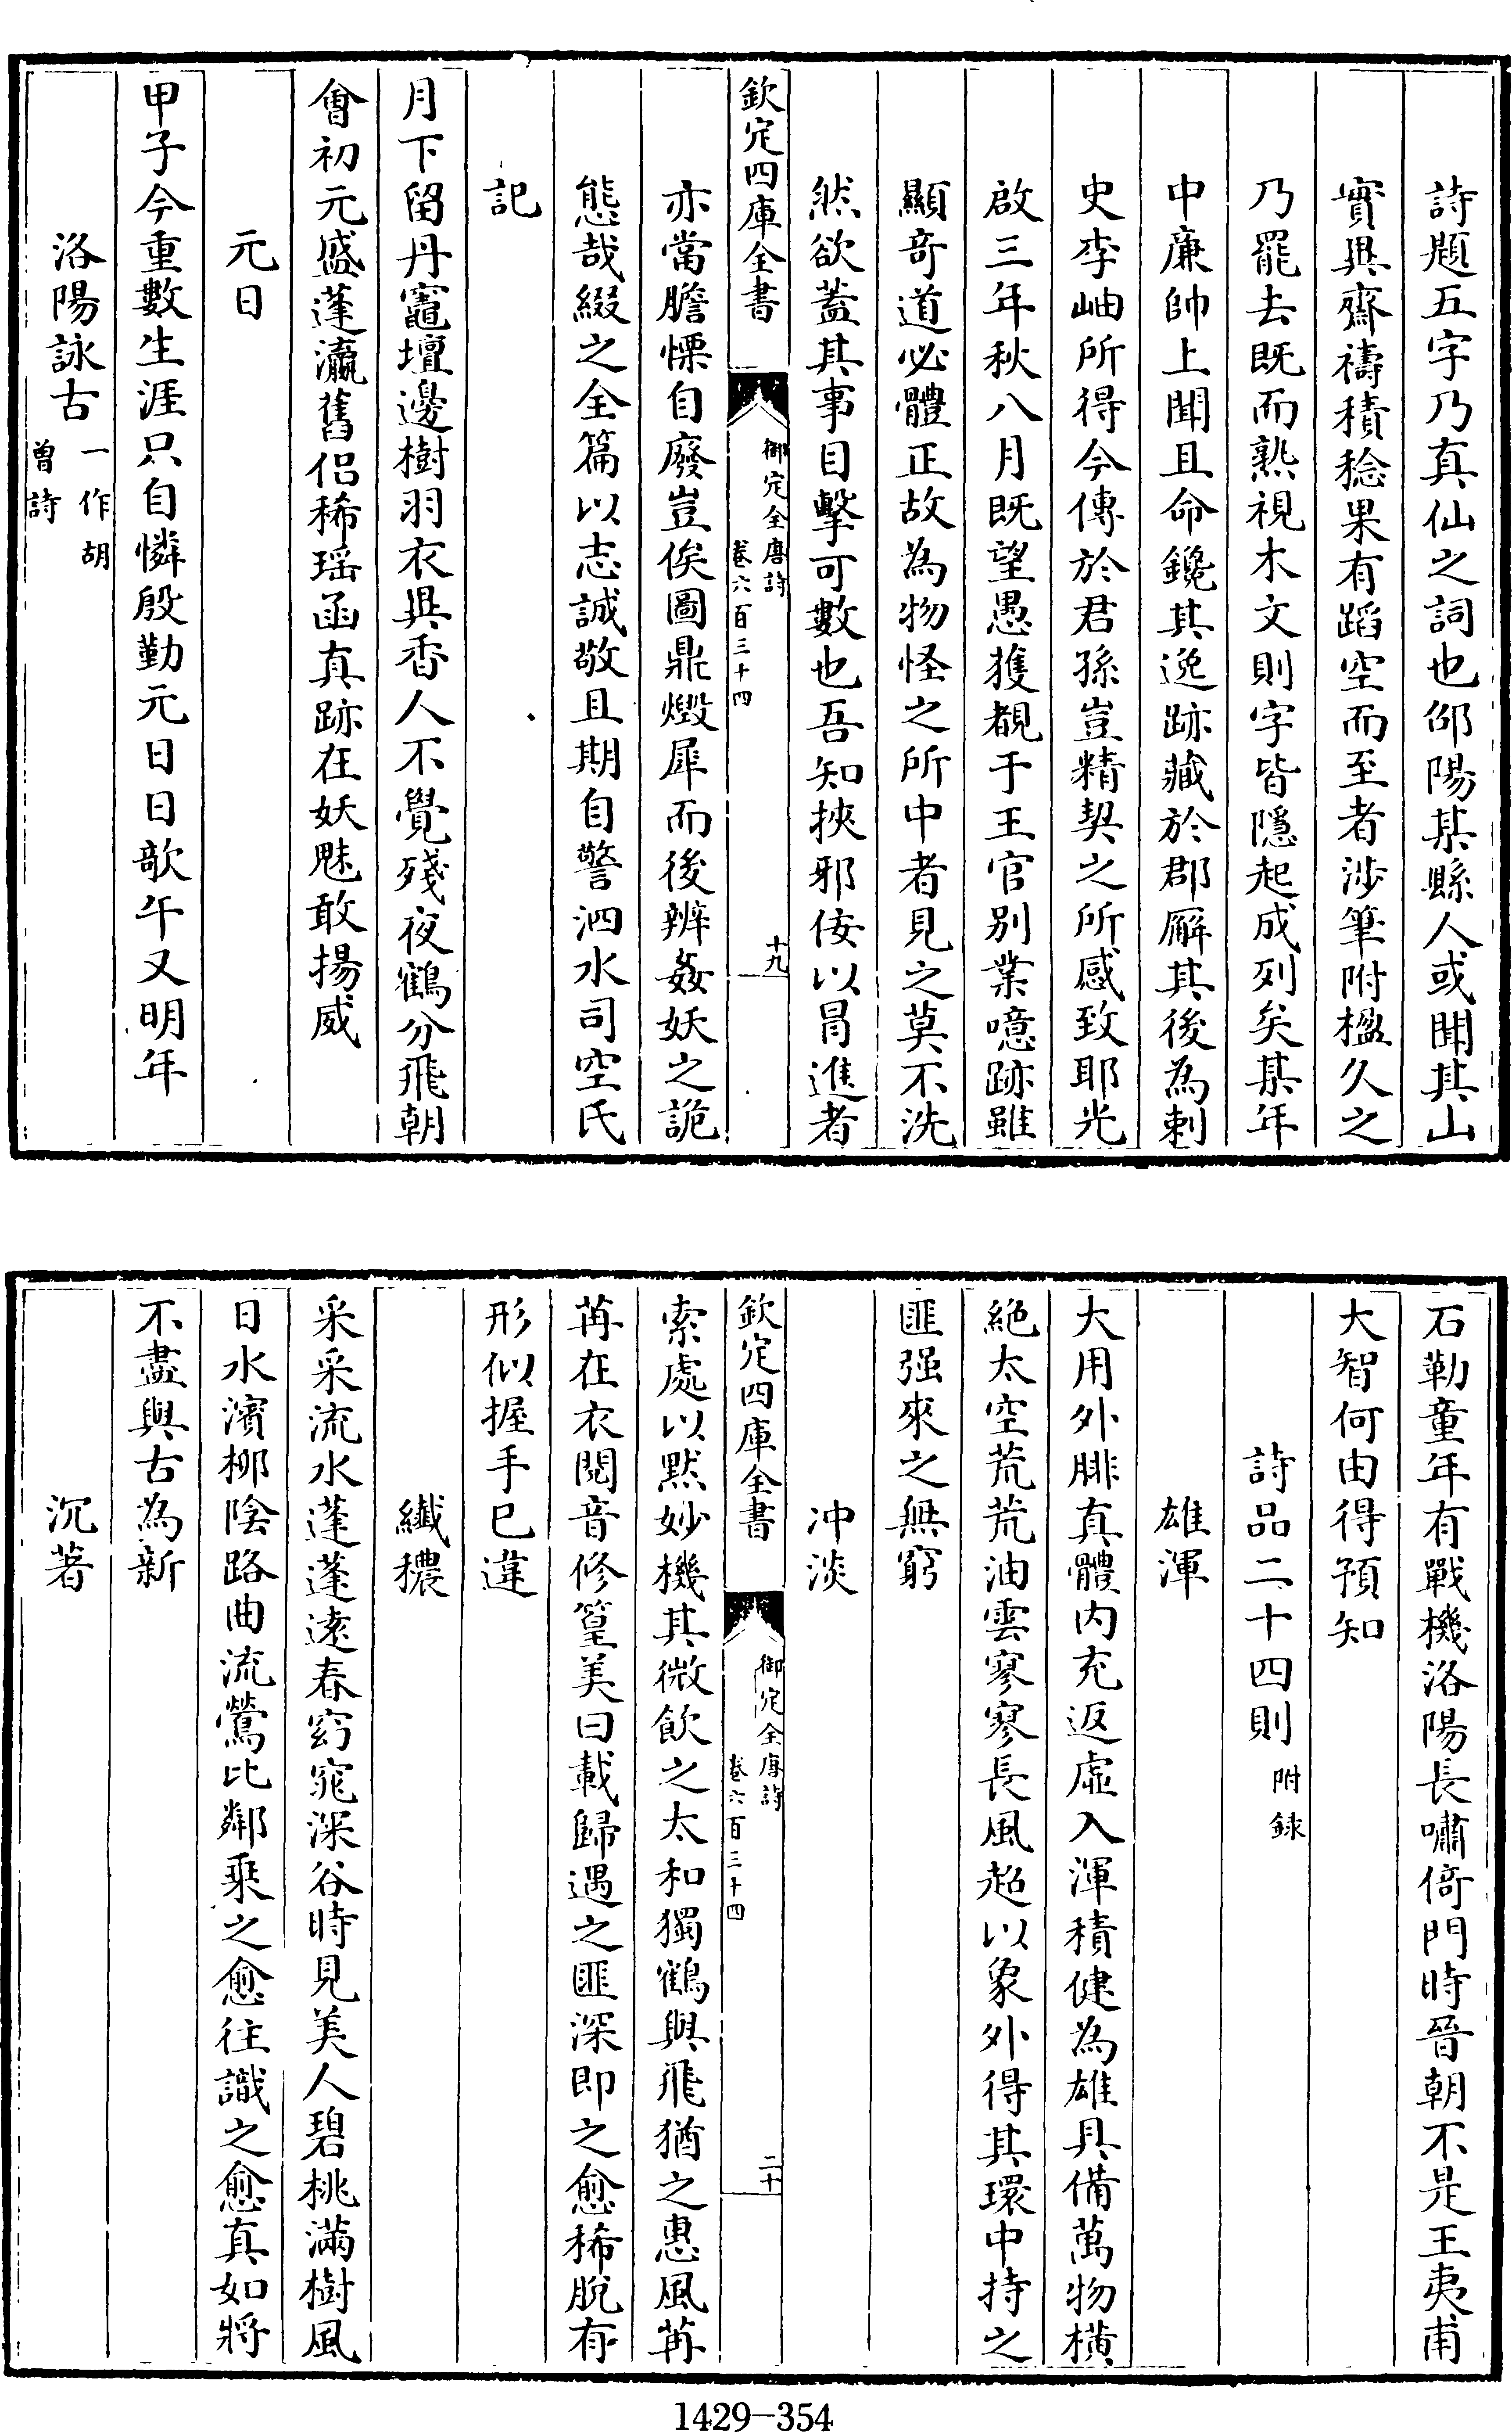 詩題五字乃真仙之詞也邠陽某縣人或聞其山
實與齋禱積稔果有蹈空而至者涉筆附楹久之
乃罷去既而熟視木文則字皆隱起成列矣某年
中廉帥上聞且命鑱其逸跡藏於郡廨其後為剌
史李岫所得今傳於君孫豈精契之所感致耶光
啟三年秋八月既望愚獲覩于王官别業噫跡雖
顯奇道必體正故為物怪之所中者見之莫不洗
然欲蓋其事目擊可數也吾知挾邪佞以冒進者
欽定四庫全書
御定全唐詩
卷六百三十四
十九
亦當膽慄自廢豈俟圖鼎燬犀而後辨姦妖之詭
態哉綴之全篇以志誠敬且期自警泗水司空氏
記
月下留丹竈壇邊樹羽衣異香人不覺殘夜鶴分飛朝
會初元盛蓬瀛舊侣稀瑶函真跡在妖魅敢揚威
元日
甲子今重數生涯只自憐殷勤元日日欹午又明年
洛陽詠古一作胡
曾詩
石勒童年有戰機洛陽長嘯倚門時晉朝不是王夷甫
大智何由得預知
詩品二十四則附錄
雄渾
大用外腓真體内充返虛入渾積健為雄具備萬物橫
絶太空荒荒油雲寥寥長風超以象外得其環中持之
匪强來之無窮
冲淡
欽定四庫全書
御定全唐詩
卷六百三十四
二十
索處以黙妙機其微飲之太和獨鶴與飛猶之惠風苒
苒在衣閱音修篁美曰載歸遇之匪深即之愈稀脫有
形似握手已違
纖穠
采采流水蓬蓬遠春窈窕深谷時見美人碧桃滿樹風
日水濱柳陰路曲流鶯比鄰乘之愈往識之愈真如將
不盡與古為新
沉著
1429-354